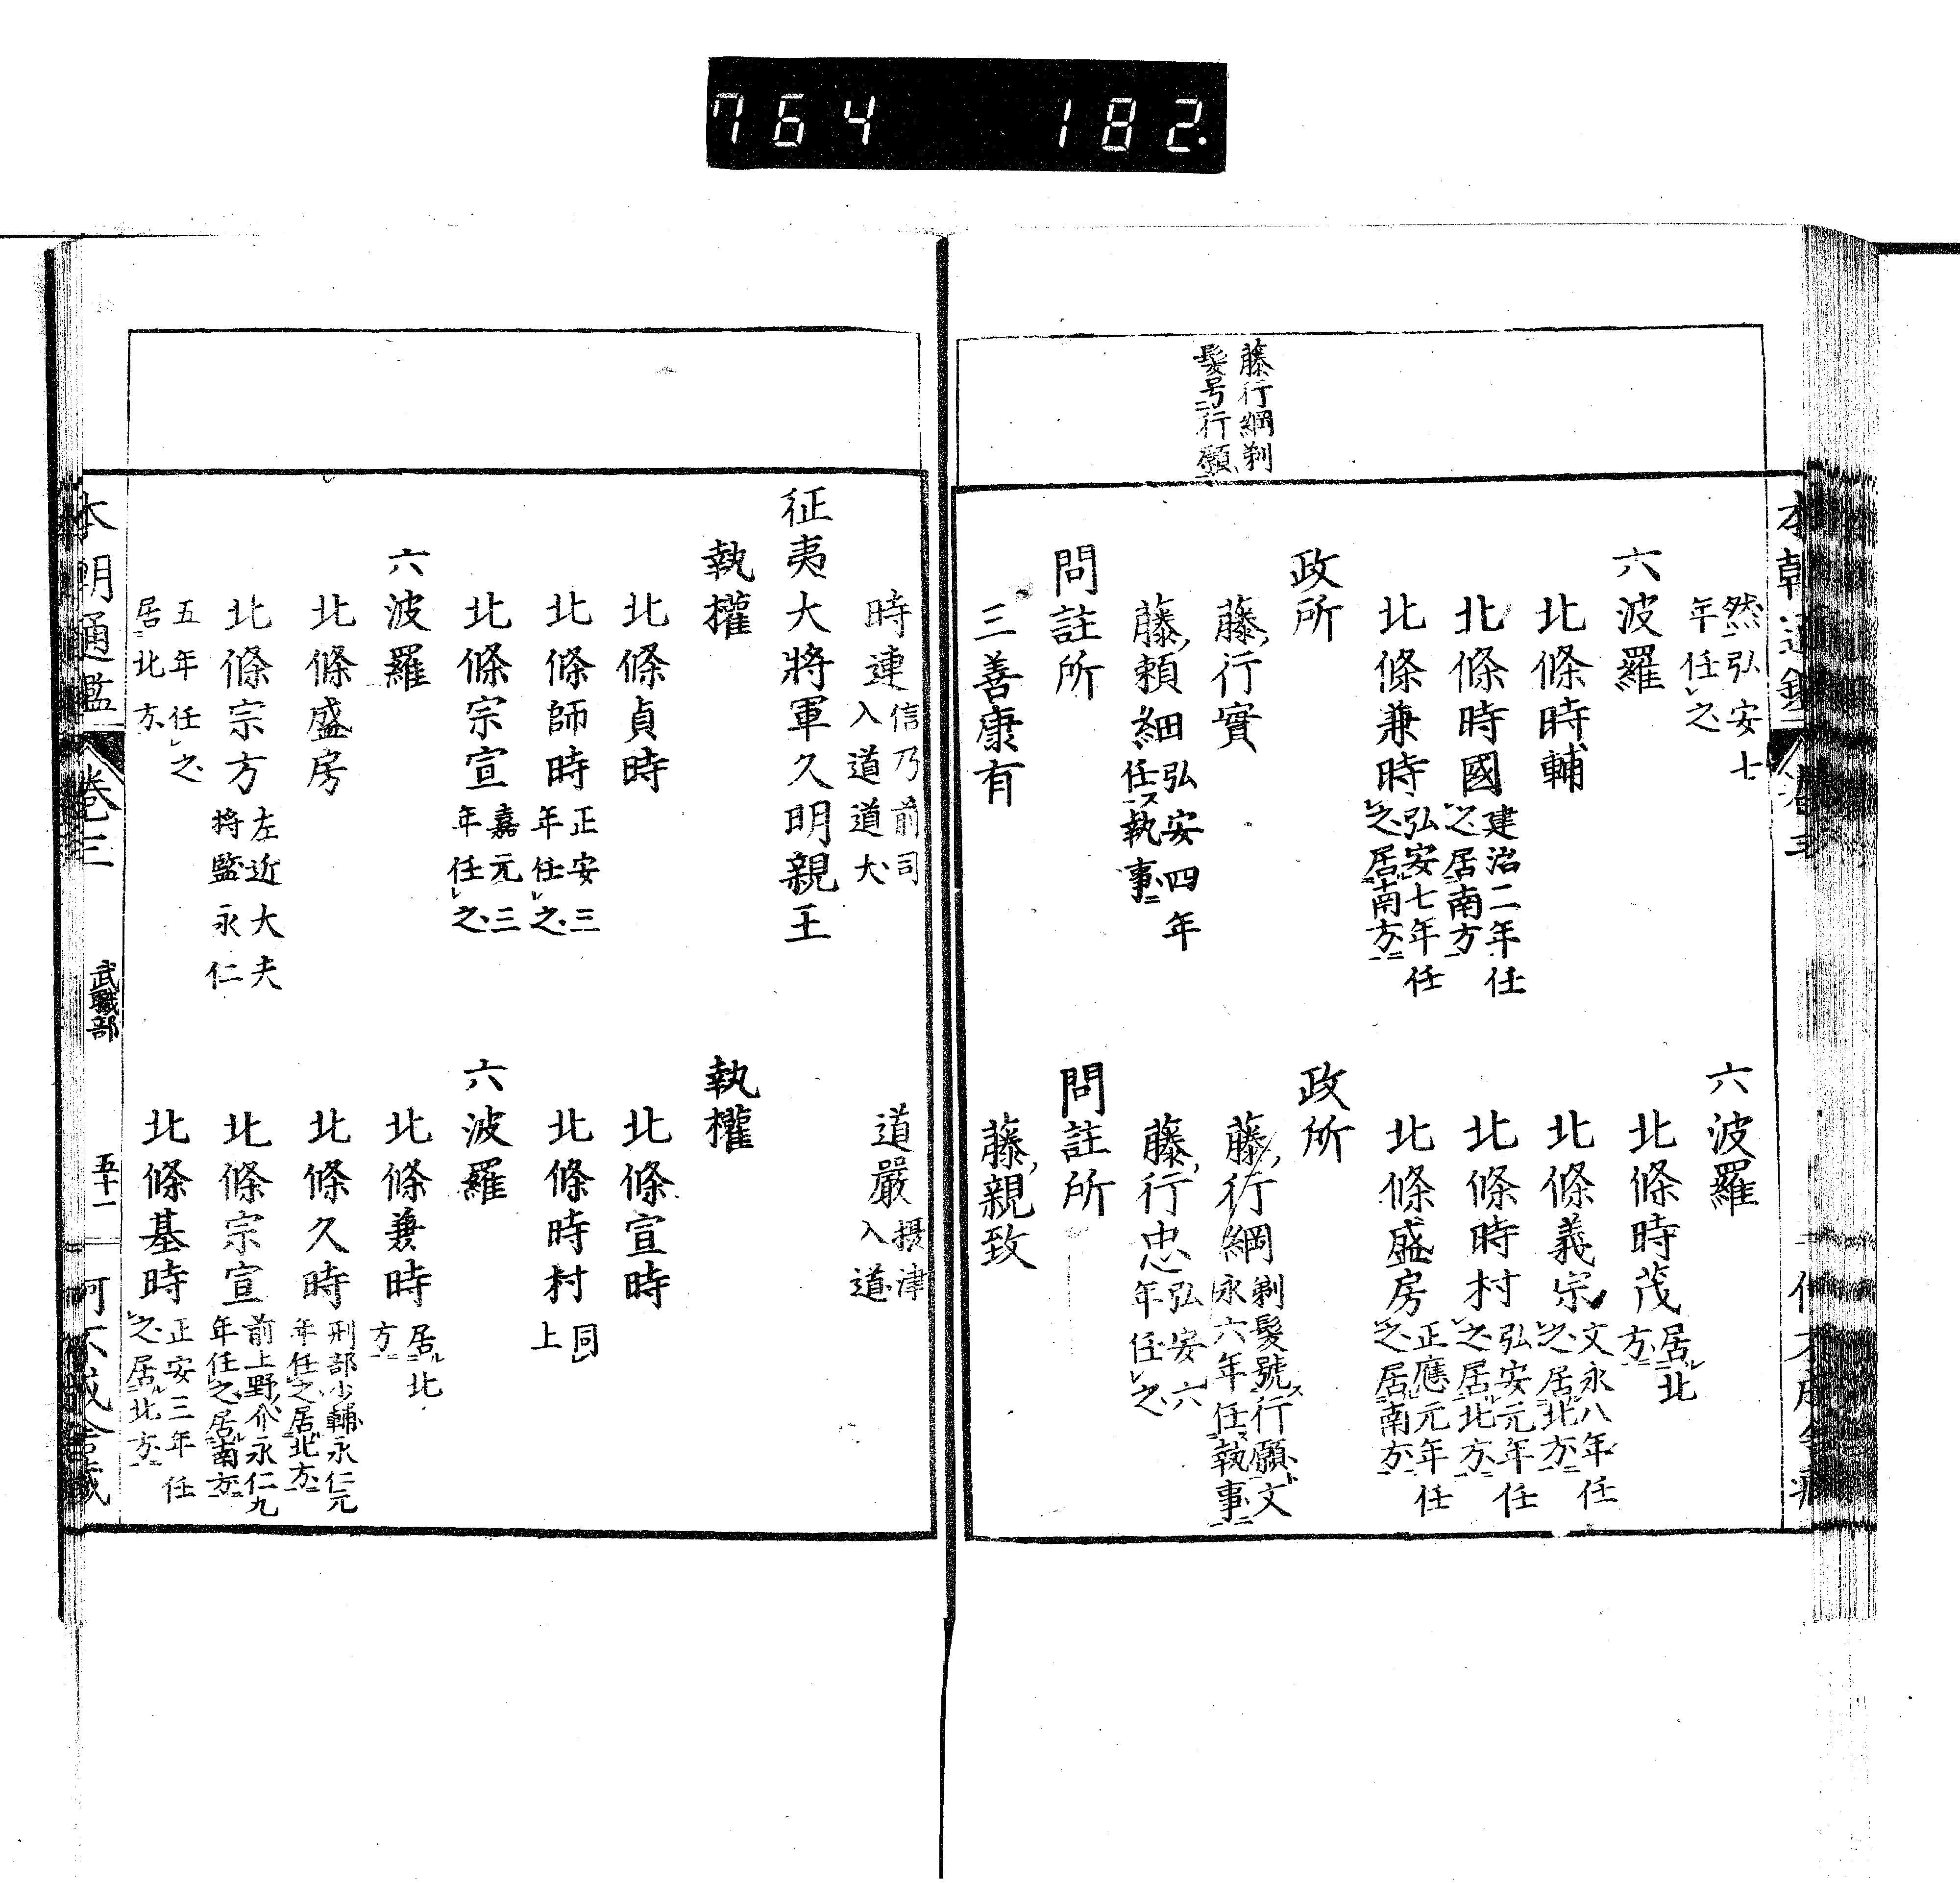 764 182.
藤行綱剃
髮号行願
然弘安七
年任之
六波羅
六波羅
北條時茂居北
方
北條時輔
北條義宗文永八年任
之居北方
北條時國建治二年任
之居南方
北條時村弘安元年任
之居北方
北條兼時弘安七年任
之居南方
北條盛房正應元年任
之居南方
政所
政所
藤行實
藤行綱剃髮號行願文
永六年任執事
藤頼細弘安四年
任執事
藤行忠弘安六
年任之
問註所
問註所
三善康有
藤親致
時連信乃前司
入道道大
道嚴摂津
入道
征夷大將軍久明親王
執權
執權
北條貞時
北條宣時
北條師時正安三
年任之
北條時村同
上
北條宗宣嘉元三
年任之
六波羅
六波羅
北條兼時居北
方
北條盛房
北條久時刑部少輔永仁元
年任之居北方
北條宗方左近大夫
将監永仁
北條宗宣前上野介永仁九
年任之居南方
五年任之
居北方
北條基時正安三年任
之居北方
本朝通鑑 卷三 武職部 五十一